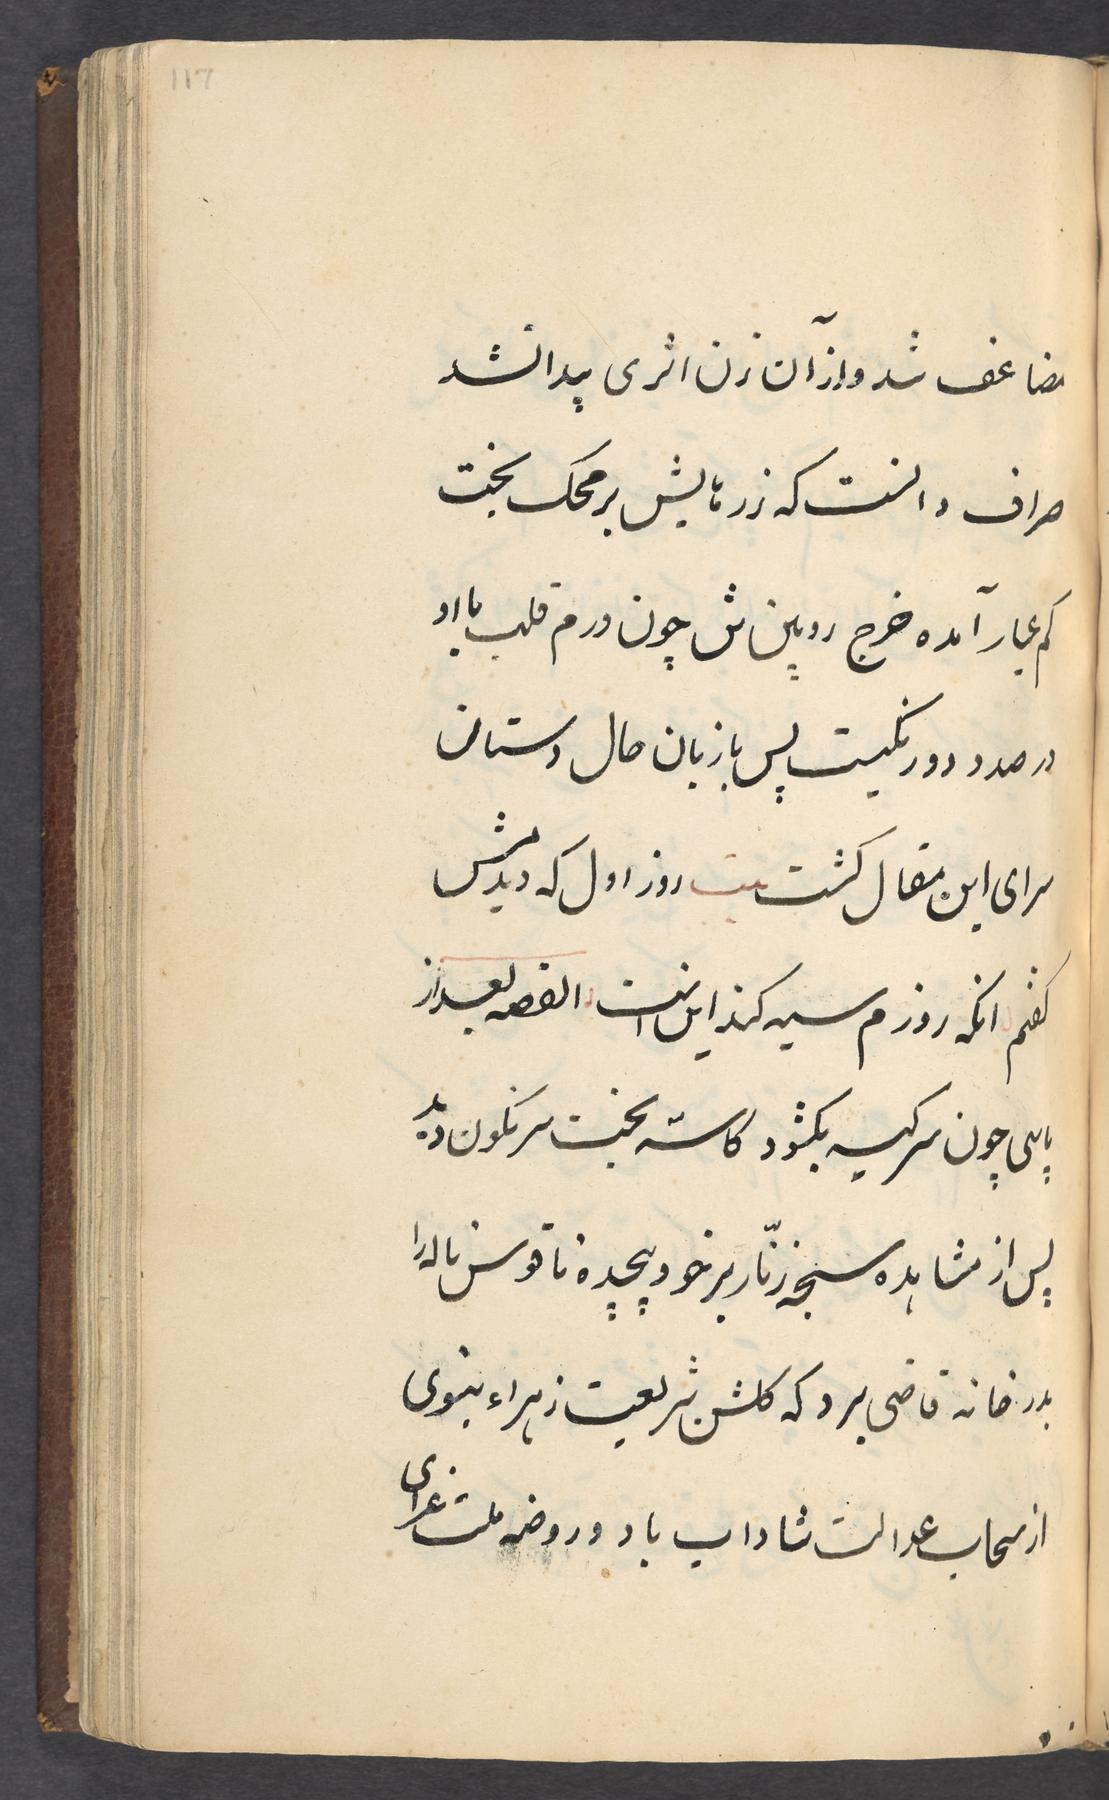 117
مضاعف شد و از آن زن اثری پیدا نشد
صراف دانست که زر نابش بر محک بخت
کم عیار آمده خرج روپین ش چون درم قلب با او
در صدد دورنکیست پس با زبان حال دستان
سرای این مقال کشت بیت روز اول که دیدمش
کفتم انکه روزم سیه کند اینست القصه بعد از
پاسی چون سر کیسه بکشود کاسه بخت سرنکون دید
پس از مشاهده سبحه زنّار بر خود پیچیده ناقوس ناله را
بدر خانه قاضی برد که کلشن شریعت زهراء نبوی
از سحاب عدالت شاداب باد و روضه ملت غرای